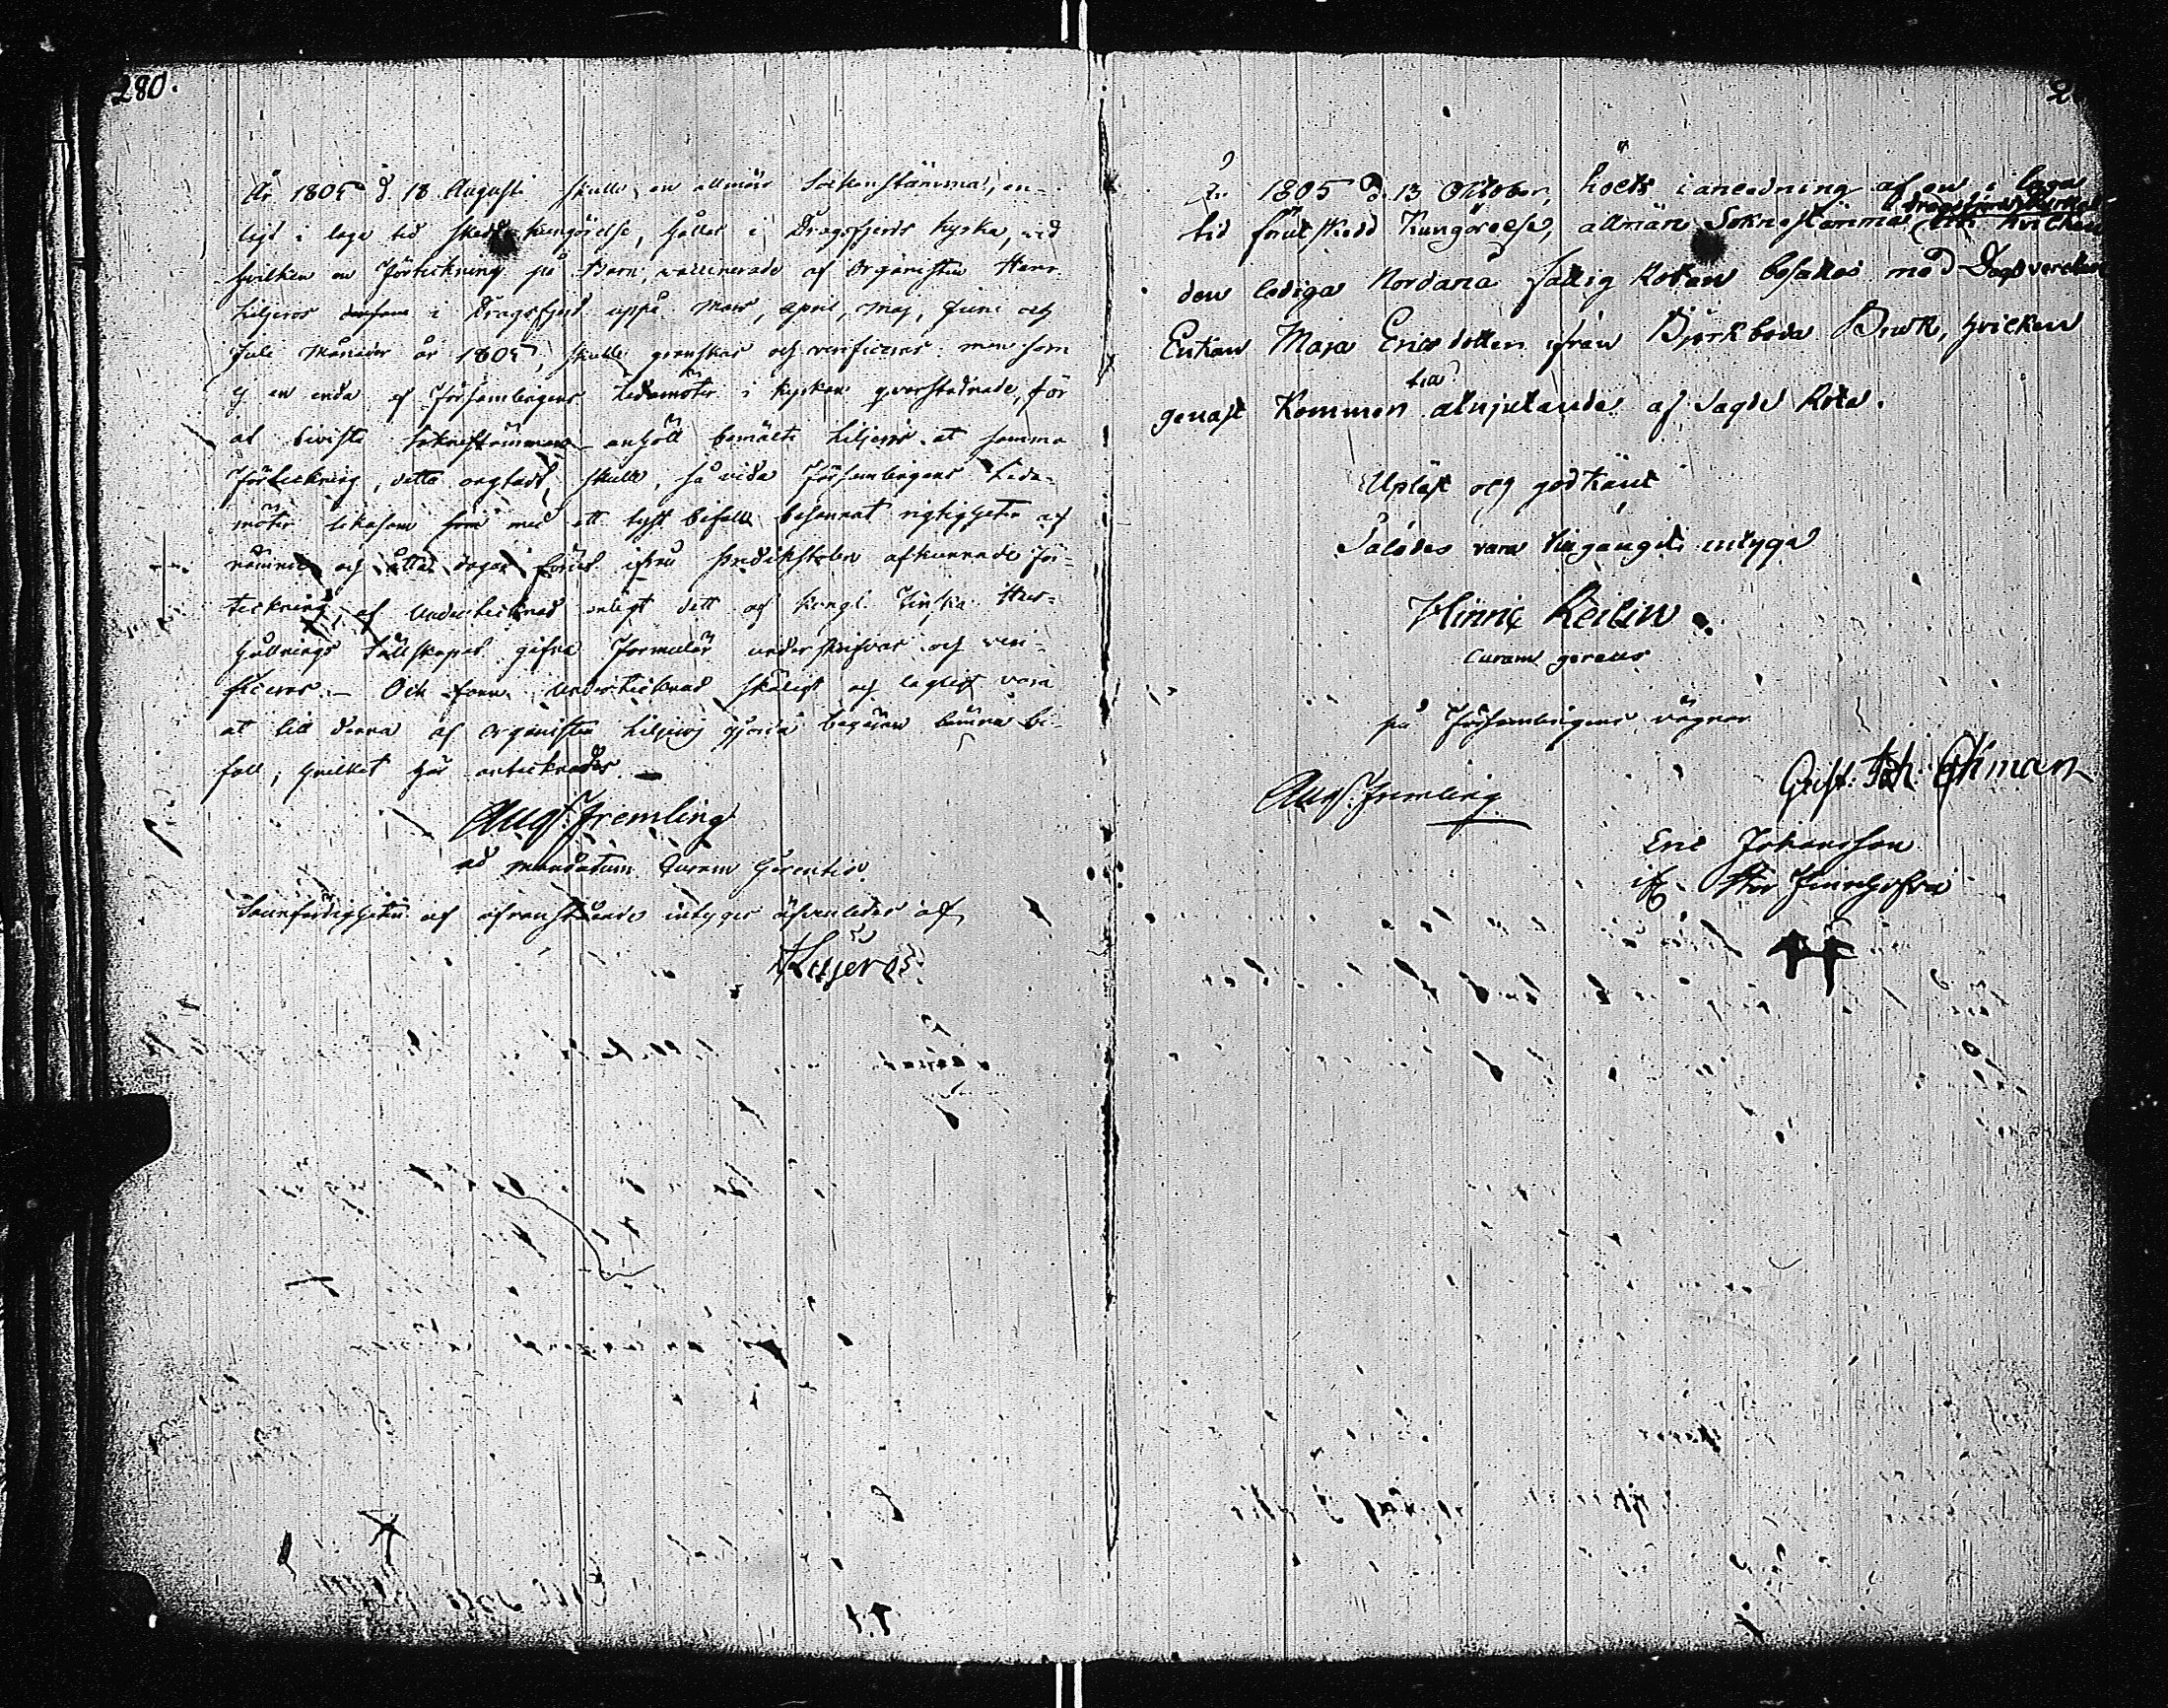 280.
År 1805 d. 18 Augusti skulle en allmän Sockenstämma, en-
ligt i laga tid skedd kungörelse, hållas i Dragsfjerds kyrka, vid
hvilken en Förteckning på Barn, vaccinerade af Organisten Herr
Liljeros i Dragsfjerd uppå Mars, April, Maj, Junii och
Julii Månader år 1805, skulle granskas och verificeras: men som
ej en enda af Församlingens Ledamöter i kyrkan qvarstadnade, för
at bivista Soknestämman anhöll bemälte Liljeros at samma
Förteckning, detta oagtadt, skulle, så vida Församlingens Leda-
möter likasom med ett tyst bifall besannat rigtigheten af
nämnde och åtta dagar förut ifrån Predikstolen afkunnade För-
teckning, af Undertecknad enligt dett af Kongl. Finska Hus-
hållnings Sällskapet gifna Formulär underskrifvas och veri-
ficeras. — Och fann Undertecknad skäligt och lagligt vara
at till denna af Organisten Liljeros gjorda begäran lämna bi-
fall, hvilket här antecknades. —
Aug. Fremling
ad mandatum Curam Gerentis.
Sannfärdigheten af ofvanstående intygas äfvenledes af
Liljeros
År 1805 d. 13 Oktober, hölts i anledning af en i laga
tid förut skedd Kungörelse, allmän Soknestämma i Dragsfjerds Kyrka vid hvilken
den lediga Nordanå fattig Roten besattes med
Enkan Maja Ericsdotter ifrån Björkboda Bruk, hvilken
genast Kommer til åtnjutande af sagde Rote.
Upläst och godkänt
Således vara tilgångit intyga
Hinric Reilin
Curam gerens
på Församlingens vägnar
Aug. Fremling
Gust. Joh. Öhman
Eric Johansson
ifr. Stor Finnhofva